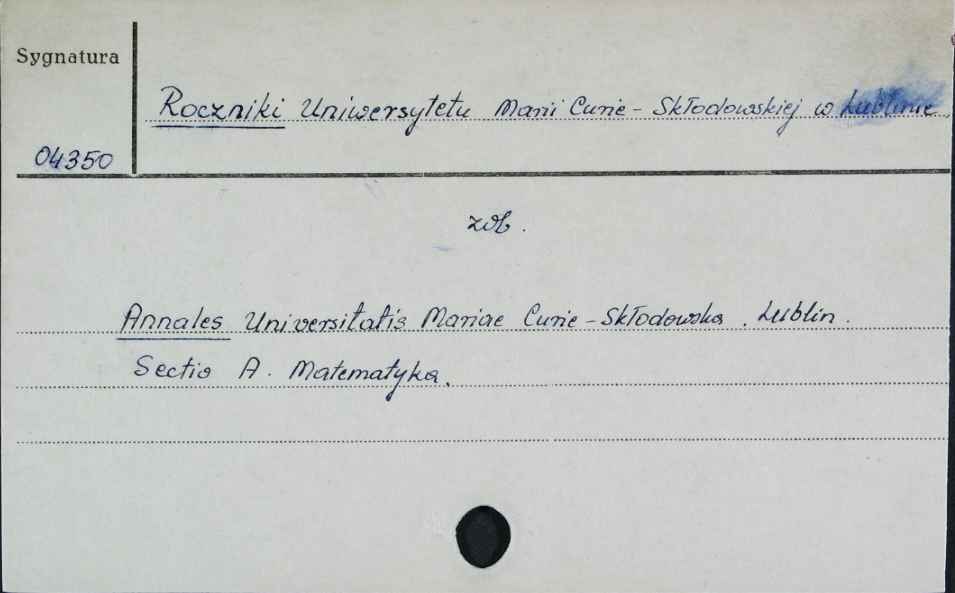 Sygnatura
Roczniki Uniwersytetu Marii Curie - Skłodowskiej w Lublinie
04350
zob.
Annales Universitatis Mariae Curie - Skłodowska. Lublin.
Sectio A. Matematyka.